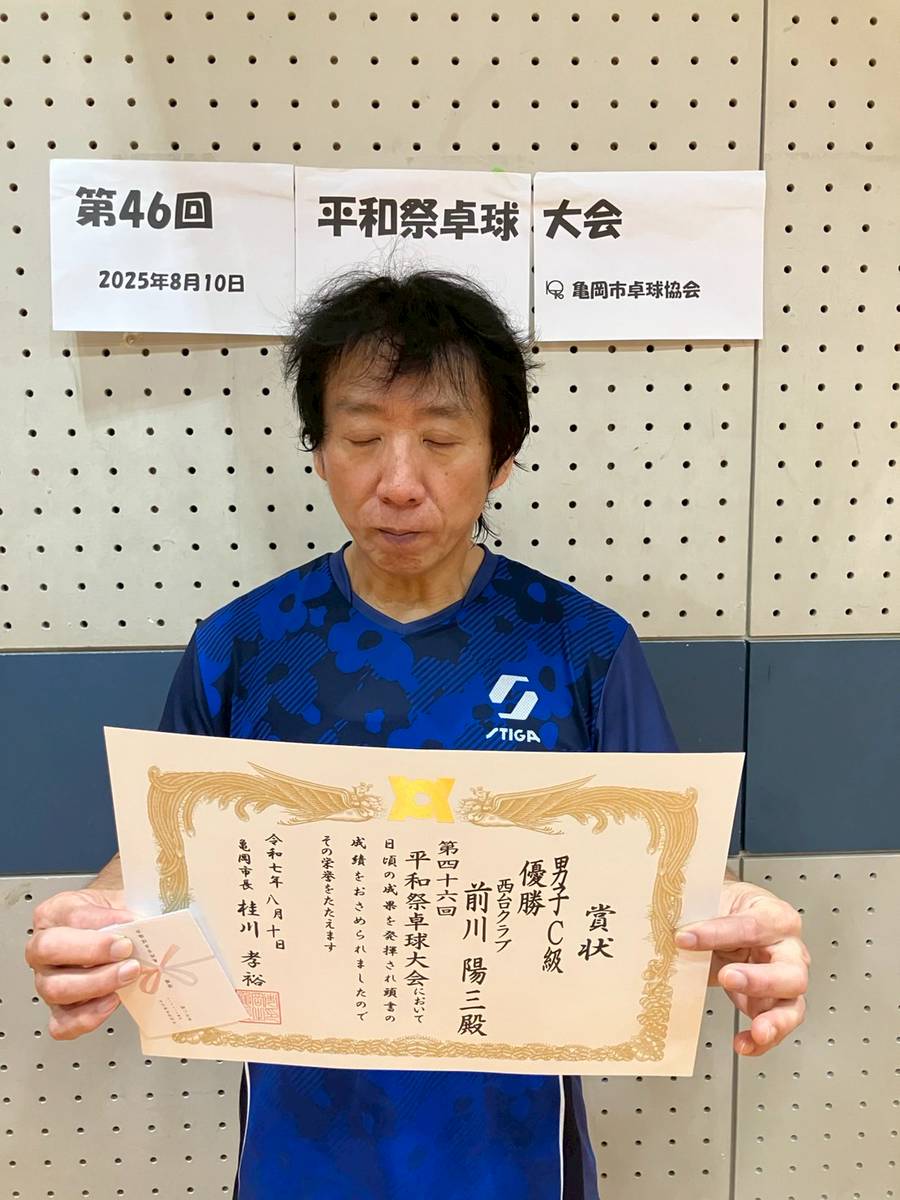 第46回 平和祭卓球大会
2025年8月10日
亀岡市卓球協会
STIGA
賞状
男子C級
優勝
西台クラブ
前川 陽三殿
第四十六回
平和祭卓球大会において
日頃の成果を発揮され頭書の
成績をおさめられましたので
その栄誉をたたえます
令和七年八月十日
亀岡市長 桂川 孝裕